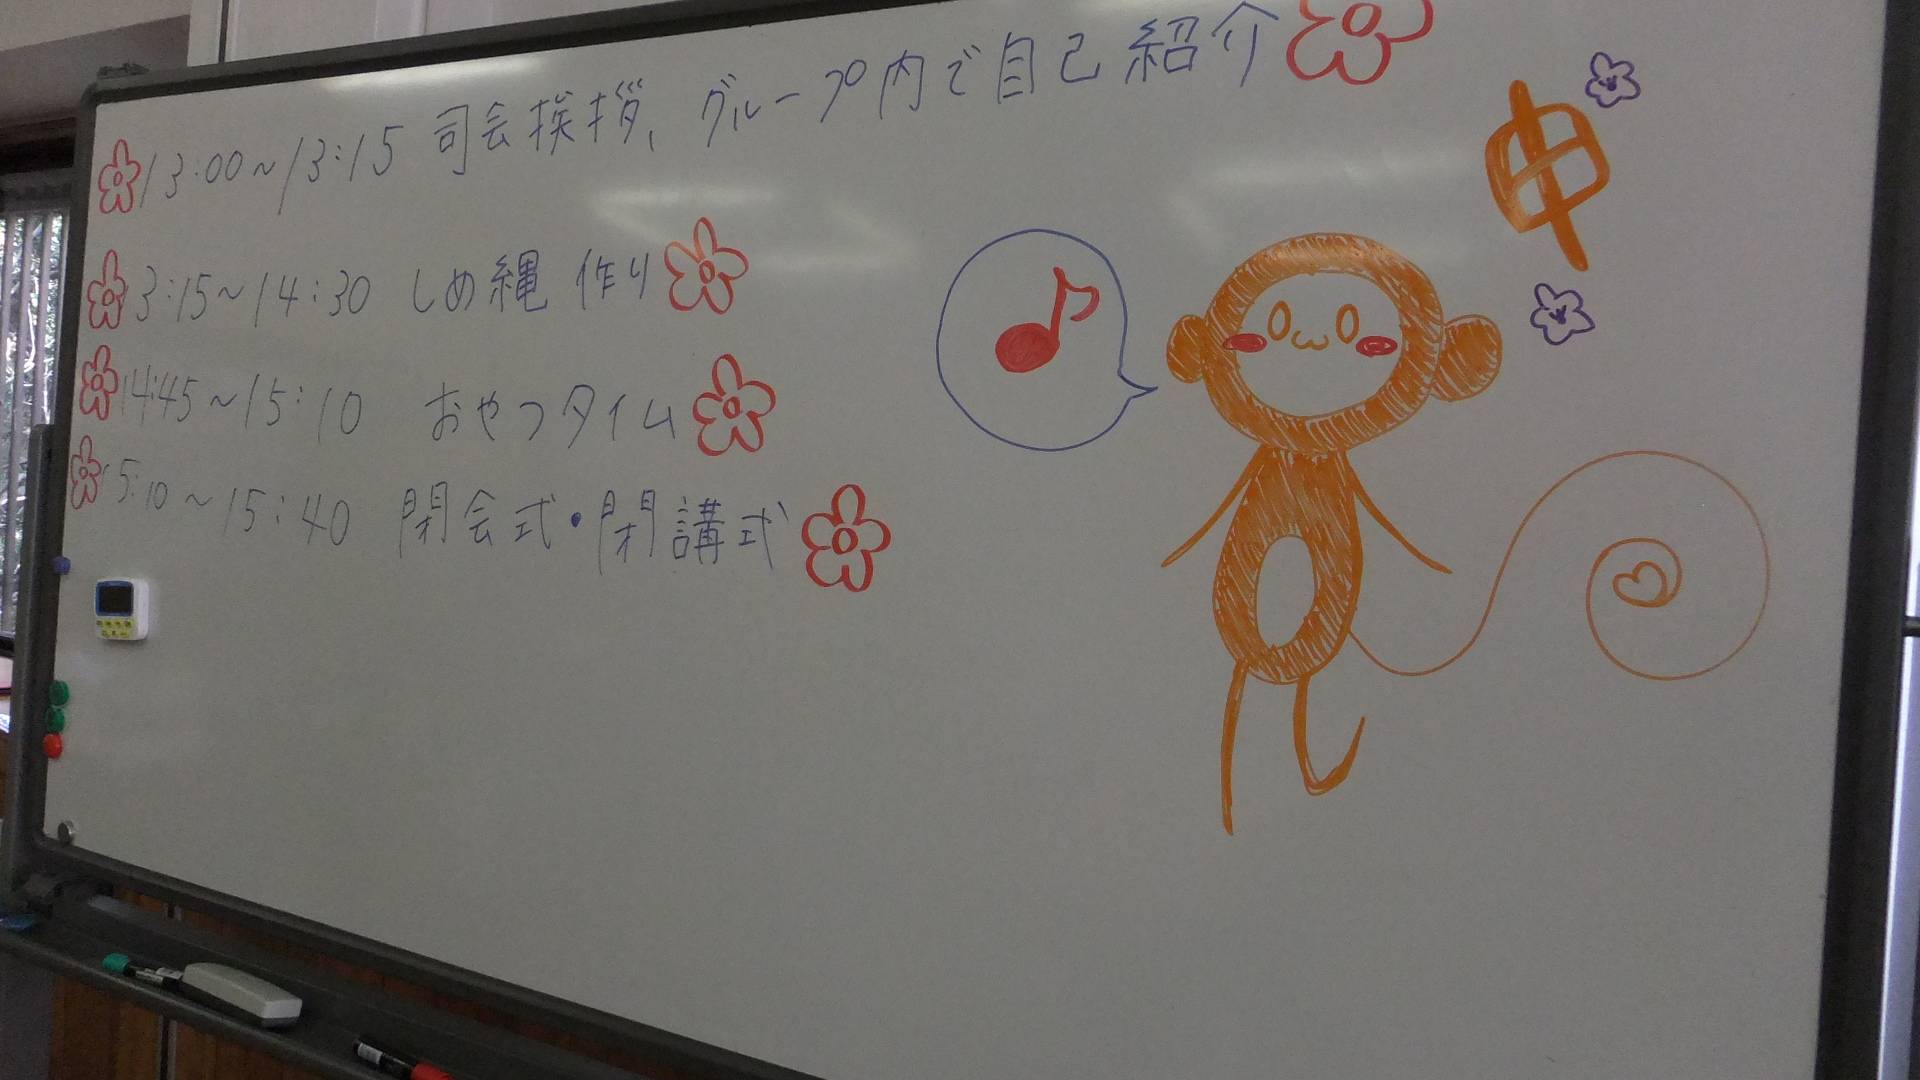 13:00~13:15 司会挨拶、グループ内で自己紹介
13:15~14:30 しめ縄 作り
14:45~15:10 おやつタイム
15:10~15:40 閉会式・閉講式
申